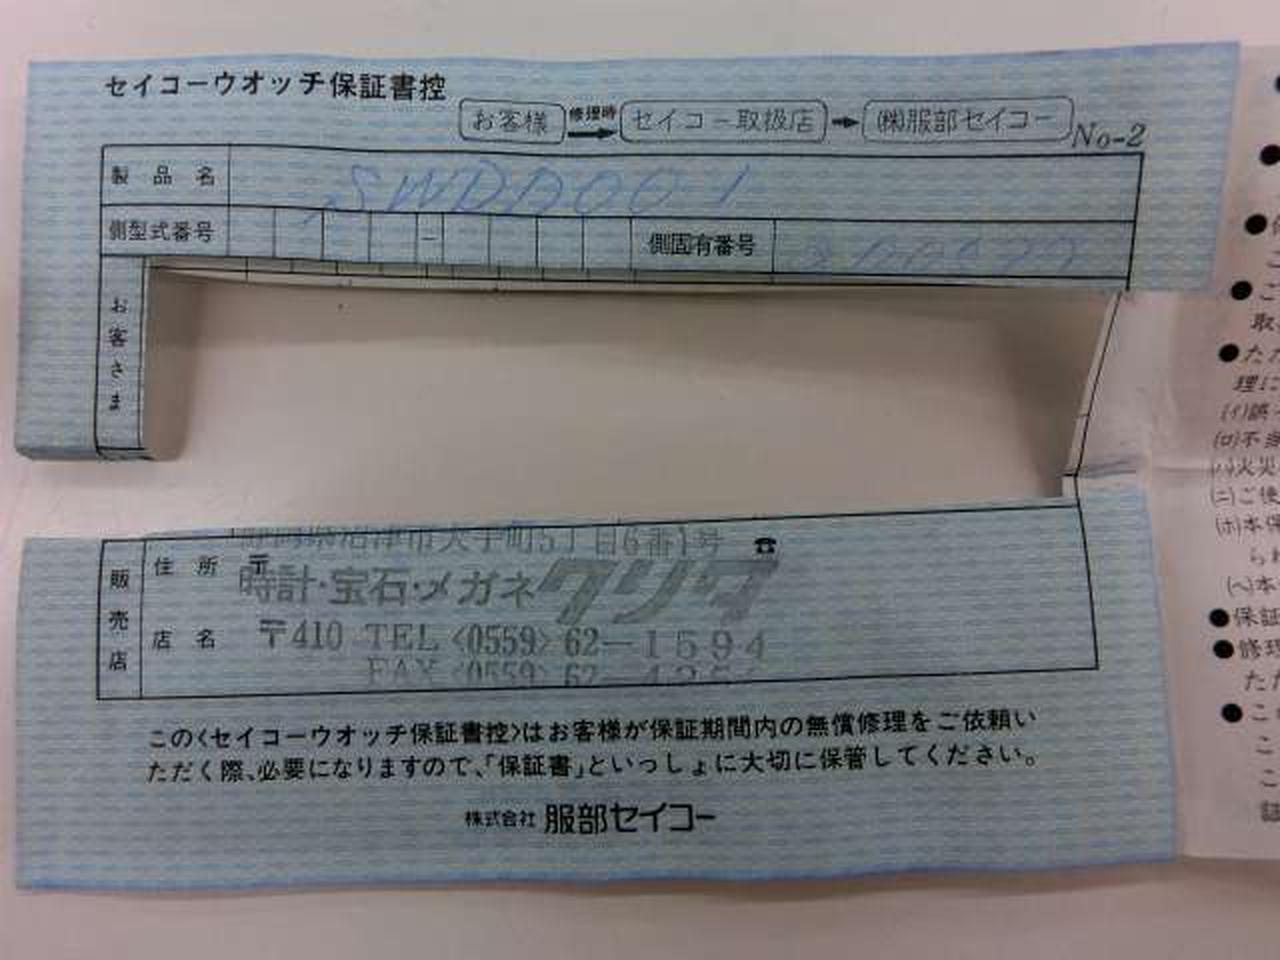 セイコーウオッチ保証書控
お客様 修理時 セイコー取扱店 ㈱服部セイコー No-2
製品名 SWDD001
側型式番号 － 側固有番号
お客さま
静岡県沼津市大手町5丁目6番1号 ☎
住所 〒
時計・宝石・メガネ クリタ
販売店
店名 〒410 TEL〈0559〉62-1594
FAX〈0559〉62-
この〈セイコーウオッチ保証書控〉はお客様が保証期間内の無償修理をご依頼い
ただく際、必要になりますので、「保証書」といっしょに大切に保管してください。
株式会社 服部セイコー
●
●
●
こ
●こ
取
●ただ
理に
(イ)誤
(ロ)不当
(ハ)火災
(ニ)ご使
(ホ)本保
られ
(ヘ)本
●保証
●修理
ただ
●こ
こ
こ
証